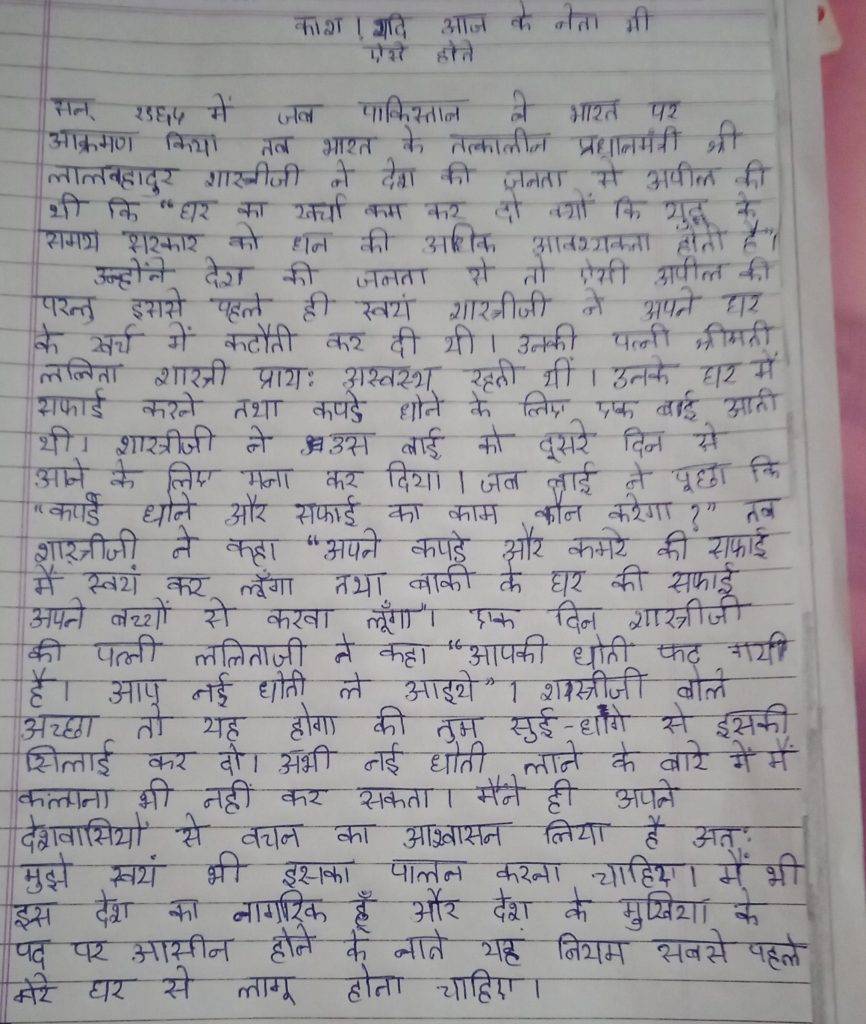 काश ! यदि आज के नेता भी
ऐसे होते
सन् में जब पाकिस्तान ने भारत पर
आक्रमण किया तब भारत के तत्कालीन प्रधानमंत्री श्री
लालबहादुर शास्त्रीजी ने देश की जनता से अपील की
थी कि "घर का खर्चा कम कर दो क्यों कि युद्ध के
समय सरकार को धन की अधिक आवश्यकता होती है"।
उन्होंने देश की जनता से तो ऐसी अपील की
परन्तु इससे पहले ही स्वयं शास्त्रीजी ने अपने घर
के खर्च में कटौती कर दी थी। उनकी पत्नी श्रीमती
ललिता शास्त्री प्रायः अस्वस्थ रहती थीं। उनके घर में
सफाई करने तथा कपड़े धोने के लिए एक बाई आती
थी। शास्त्रीजी ने उस बाई को दूसरे दिन से
आने के लिए मना कर दिया। जब बाई ने पूछा कि
"कपड़े धोने और सफाई का काम कौन करेगा?" तब
शास्त्रीजी ने कहा "अपने कपड़े और कमरे की सफाई
मैं स्वयं कर लूँगा तथा बाकी के घर की सफाई
अपने बच्चों से करवा लूँगा"। एक दिन शास्त्रीजी
की पत्नी ललिताजी ने कहा "आपकी धोती फट गयी
है। आप नई धोती ले आइये"। शास्त्रीजी बोले
अच्छा तो यह होगा की तुम सुई-धागे से इसकी
सिलाई कर दो। अभी नई धोती लाने के बारे में मैं
कल्पना भी नहीं कर सकता। मैंने ही अपने
देशवासियों से वचन का आश्वासन लिया है अतः
मुझे स्वयं भी इसका पालन करना चाहिए। मैं भी
इस देश का नागरिक हूँ और देश के मुखिया के
पद पर आसीन होने के नाते यह नियम सबसे पहले
मेरे घर से लागू होना चाहिए।